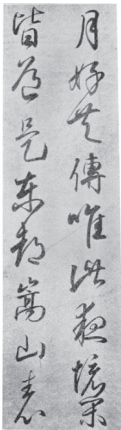 月好共傳唯此夜境閒
皆道是東都嵩山表